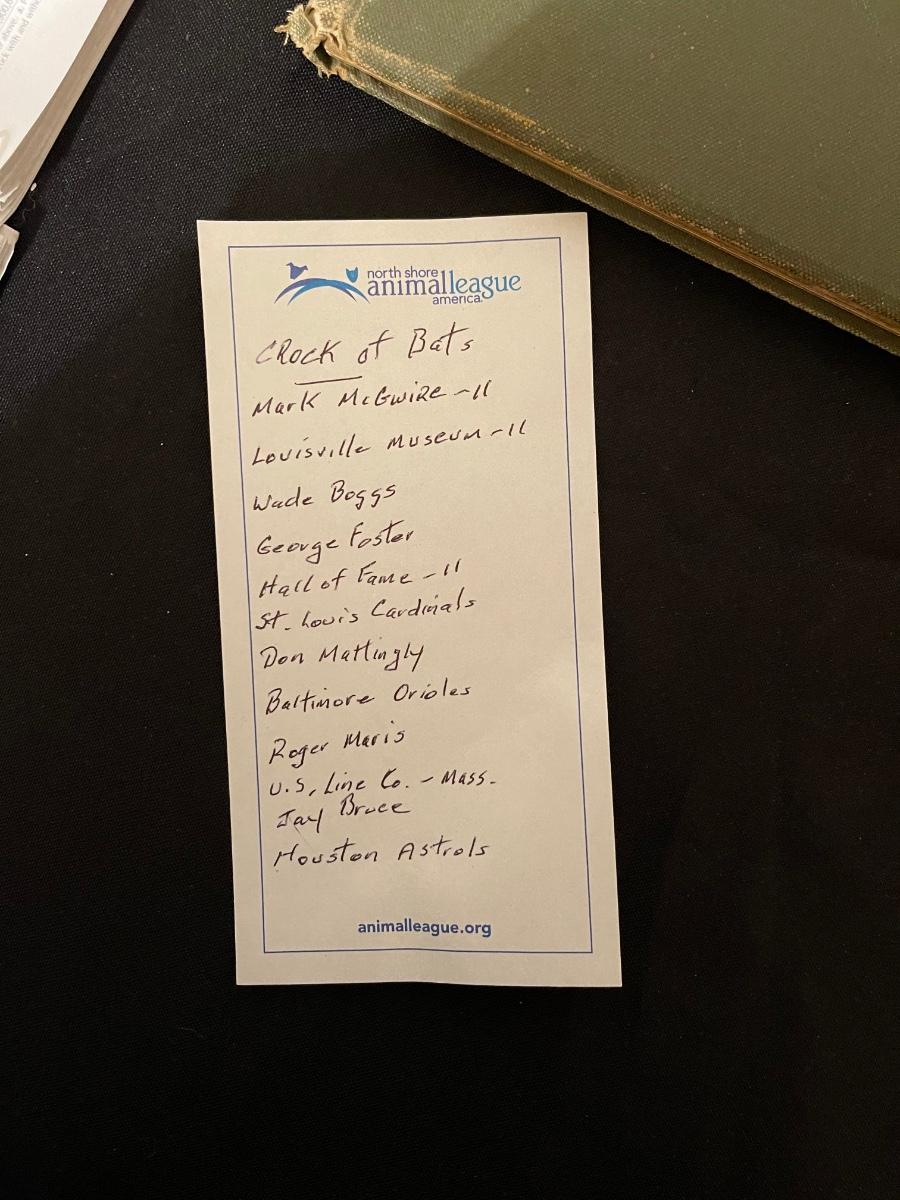 north shore
animalleague
america
CRock of Bats
Mark McGwire - 11
Louisville Museum - 11
Wade Boggs
George Foster
Hall of Fame - 11
St. Louis Cardinals
Don Mattingly
Baltimore Orioles
Roger Maris
U.S. Line Co. - Mass.
Jay Bruce
Houston Astrols
animalleague.org